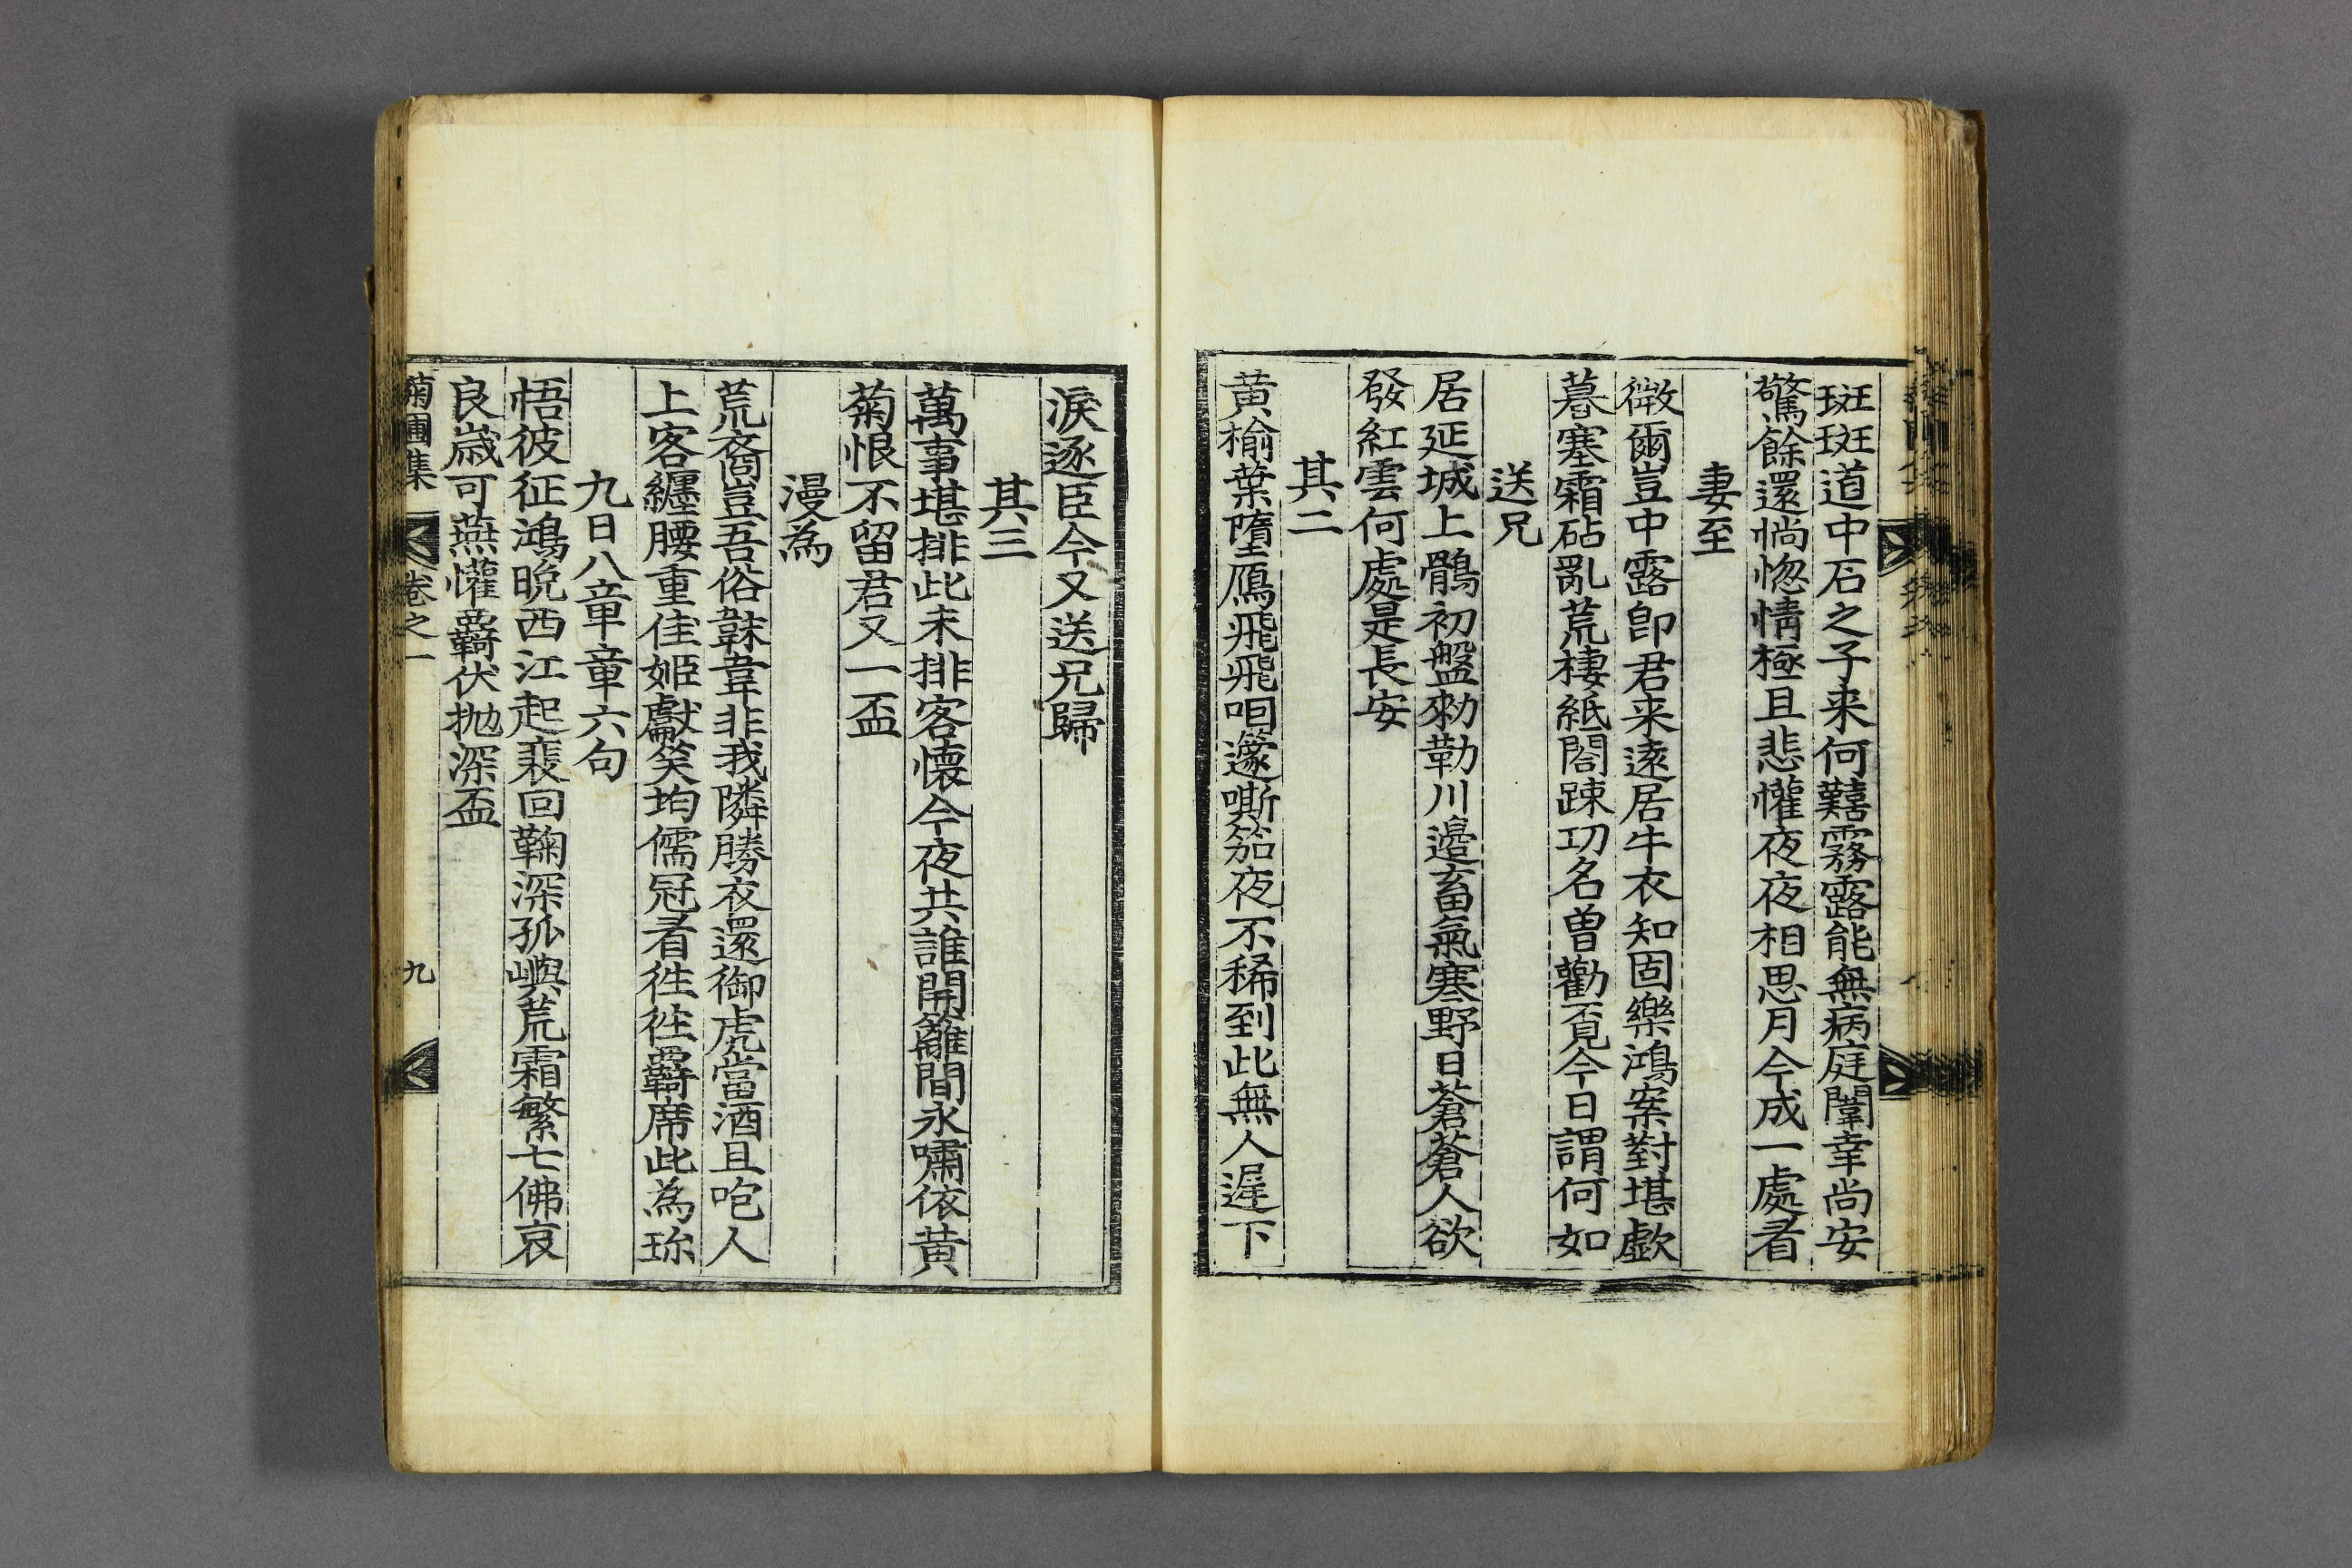 斑斑道中石之子来何囏霧露能無病庭闈幸尚安
驚餘還惝惚情極且悲懽夜夜相思月今成一處看
妻至
微爾豈中露卽君来遠居牛衣知固樂鴻案對堪歔
暮塞霜砧亂荒棲紙閤踈功名曾勸覔今日謂何如
送兄
居延城上鶻初盤勑勒川邉畜氣寒野日蒼蒼人欲
發紅雲何處是長安
其二
黄榆葉墮鴈飛飛咽邃嘶笳夜不稀到此無人遅下
淚逐臣今又送兄歸
其三
萬事堪排此未排客懐今夜共誰開籬間永嘯依黄
菊恨不留君又一盃
漫為
荒裔豈吾俗韎韋非我隣勝衣還御虎當酒且咆人
上客纒腰重佳姬獻笑均儒冠看徃徃羇席此為珎
九日八章章六句
悟彼征鴻晩西江起裵回鞠深孤嶼荒霜繁七佛哀
良歳可無懽羇伏抛深盃
菊圃集 卷之一 九